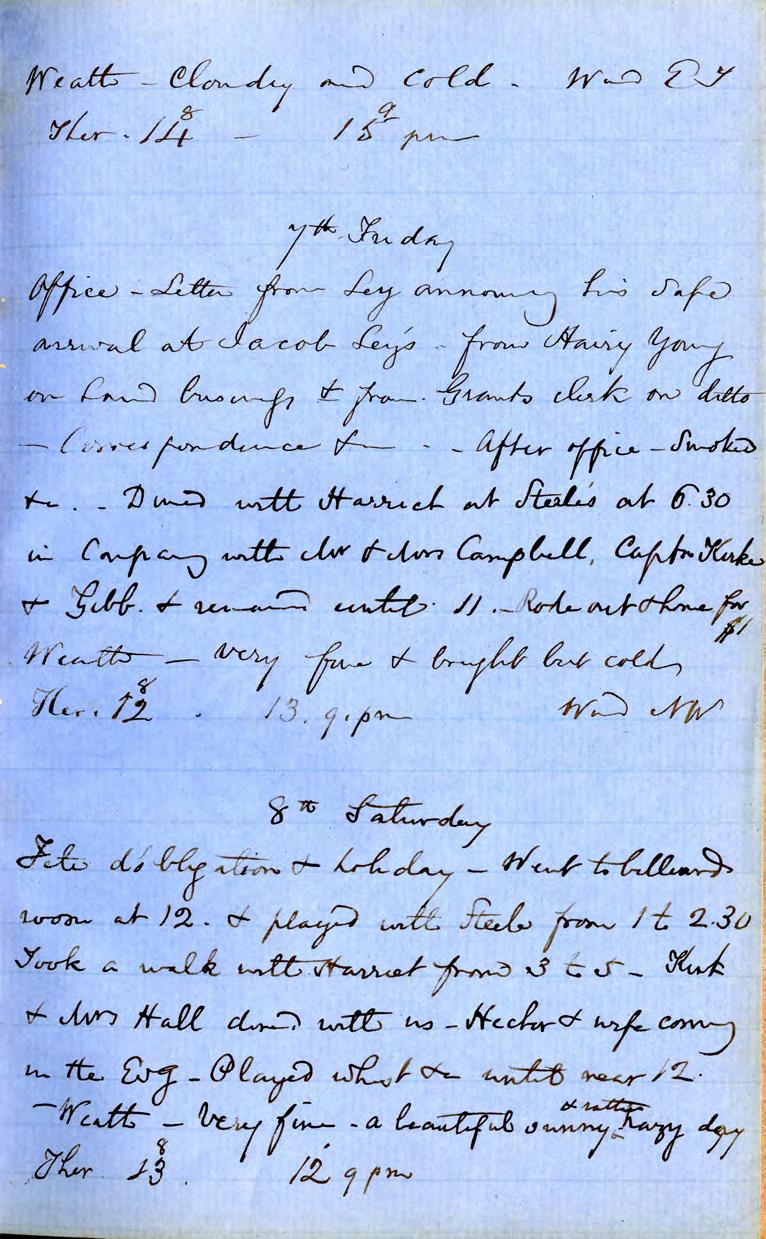 Weathr – Cloudy and Cold – Wind E
Ther. 14 8 – 15 9 pm
7th Friday
Office – Letter from Ley announcg his safe
arrival at Jacob Ley's – from Hairy Young
on land business & from Grants clerk on ditto
– Correspondence &c – – After office – Smoked
&c. – Dined with Harriet at Steele's at 6.30
in Company with Mr & Mrs Campbell, Captn Kirke
& Gibb. & remained until 11. – Rode out & home for
$1
Weathr – very fine & bright but cold
Ther. 12 8 . 13. 9. pm Wind NW
8th Saturday
Fete d'obligation & holiday – Went to billiard
room at 12. & played with Steele from 1 to 2.30
Took a walk with Harriet from 3 to 5 – Kirk
& Mrs Hall dined with us – Hector & wife coming
in the Evg – Played whist &c until near 12.
– Weathr – Very fine – a beautiful sunny & rather hazy day
Ther 13 8 . 12 9 pm